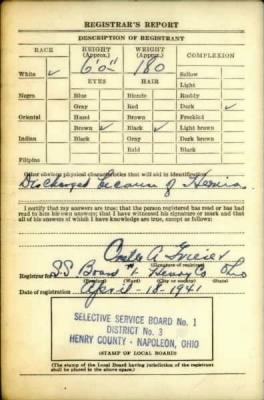 REGISTRAR'S REPORT
DESCRIPTION OF REGISTRANT
RACE HEIGHT (Approx.) WEIGHT (Approx.) COMPLEXION
6'0" 180 Sallow
White ✓ EYES HAIR Light
Negro Blue Blonde Ruddy
Gray Red Dark ✓
Oriental Hazel Brown Freckled
Brown ✓ Black ✓ Light brown
Indian Black Gray Dark brown
Bald Black
Filipino
Other obvious physical characteristics that will aid in identification
Discharged because of Hernia
I certify that my answers are true; that the person registered has read or has
had read to him his own answers; that I have witnessed his signature or mark and that
all of his answers of which I have knowledge are true, except as follows:
(Signature of registrar)
Registrar for S.S. Board #1 Henry Co Ohio
(Precinct) (Ward) (City or county) (State)
Date of registration April-18-1941
SELECTIVE SERVICE BOARD No. 1
DISTRICT No. 3
HENRY COUNTY - NAPOLEON, OHIO
(STAMP OF LOCAL BOARD)
(The stamp of the Local Board having jurisdiction of the registrant
shall be placed in the above space.)